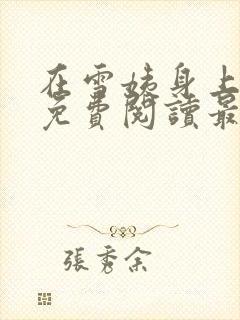 在雪姨身上
免費閱讀最
張秀余